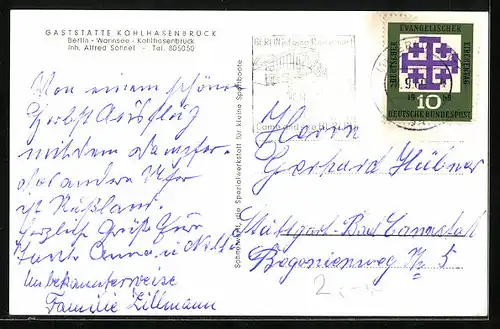 GASTSTÄTTE KOHLHASENBRÜCK
Berlin - Wannsee - Kohlhasenbrück
Inh. Alfred Schnell - Tel. 805050
Von einem schönen
Herbst Ausflug
mit dem Dampfer.
das andere Ufer
ist Rußland.
Herzliche Grüße für
Tante Anna u.
Unbekannterweise
Familie Lillmann
die Spezialwerkstatt für kleine Sportboote
BERLIN
BERLIN
EVANGELISCHER
DEUTSCHER
KIRCHENTAG
10
DEUTSCHE BUNDESPOST
Herrn
Gerhard Hübner
Stuttgart-Bad Cannstatt
Begonienweg № 5